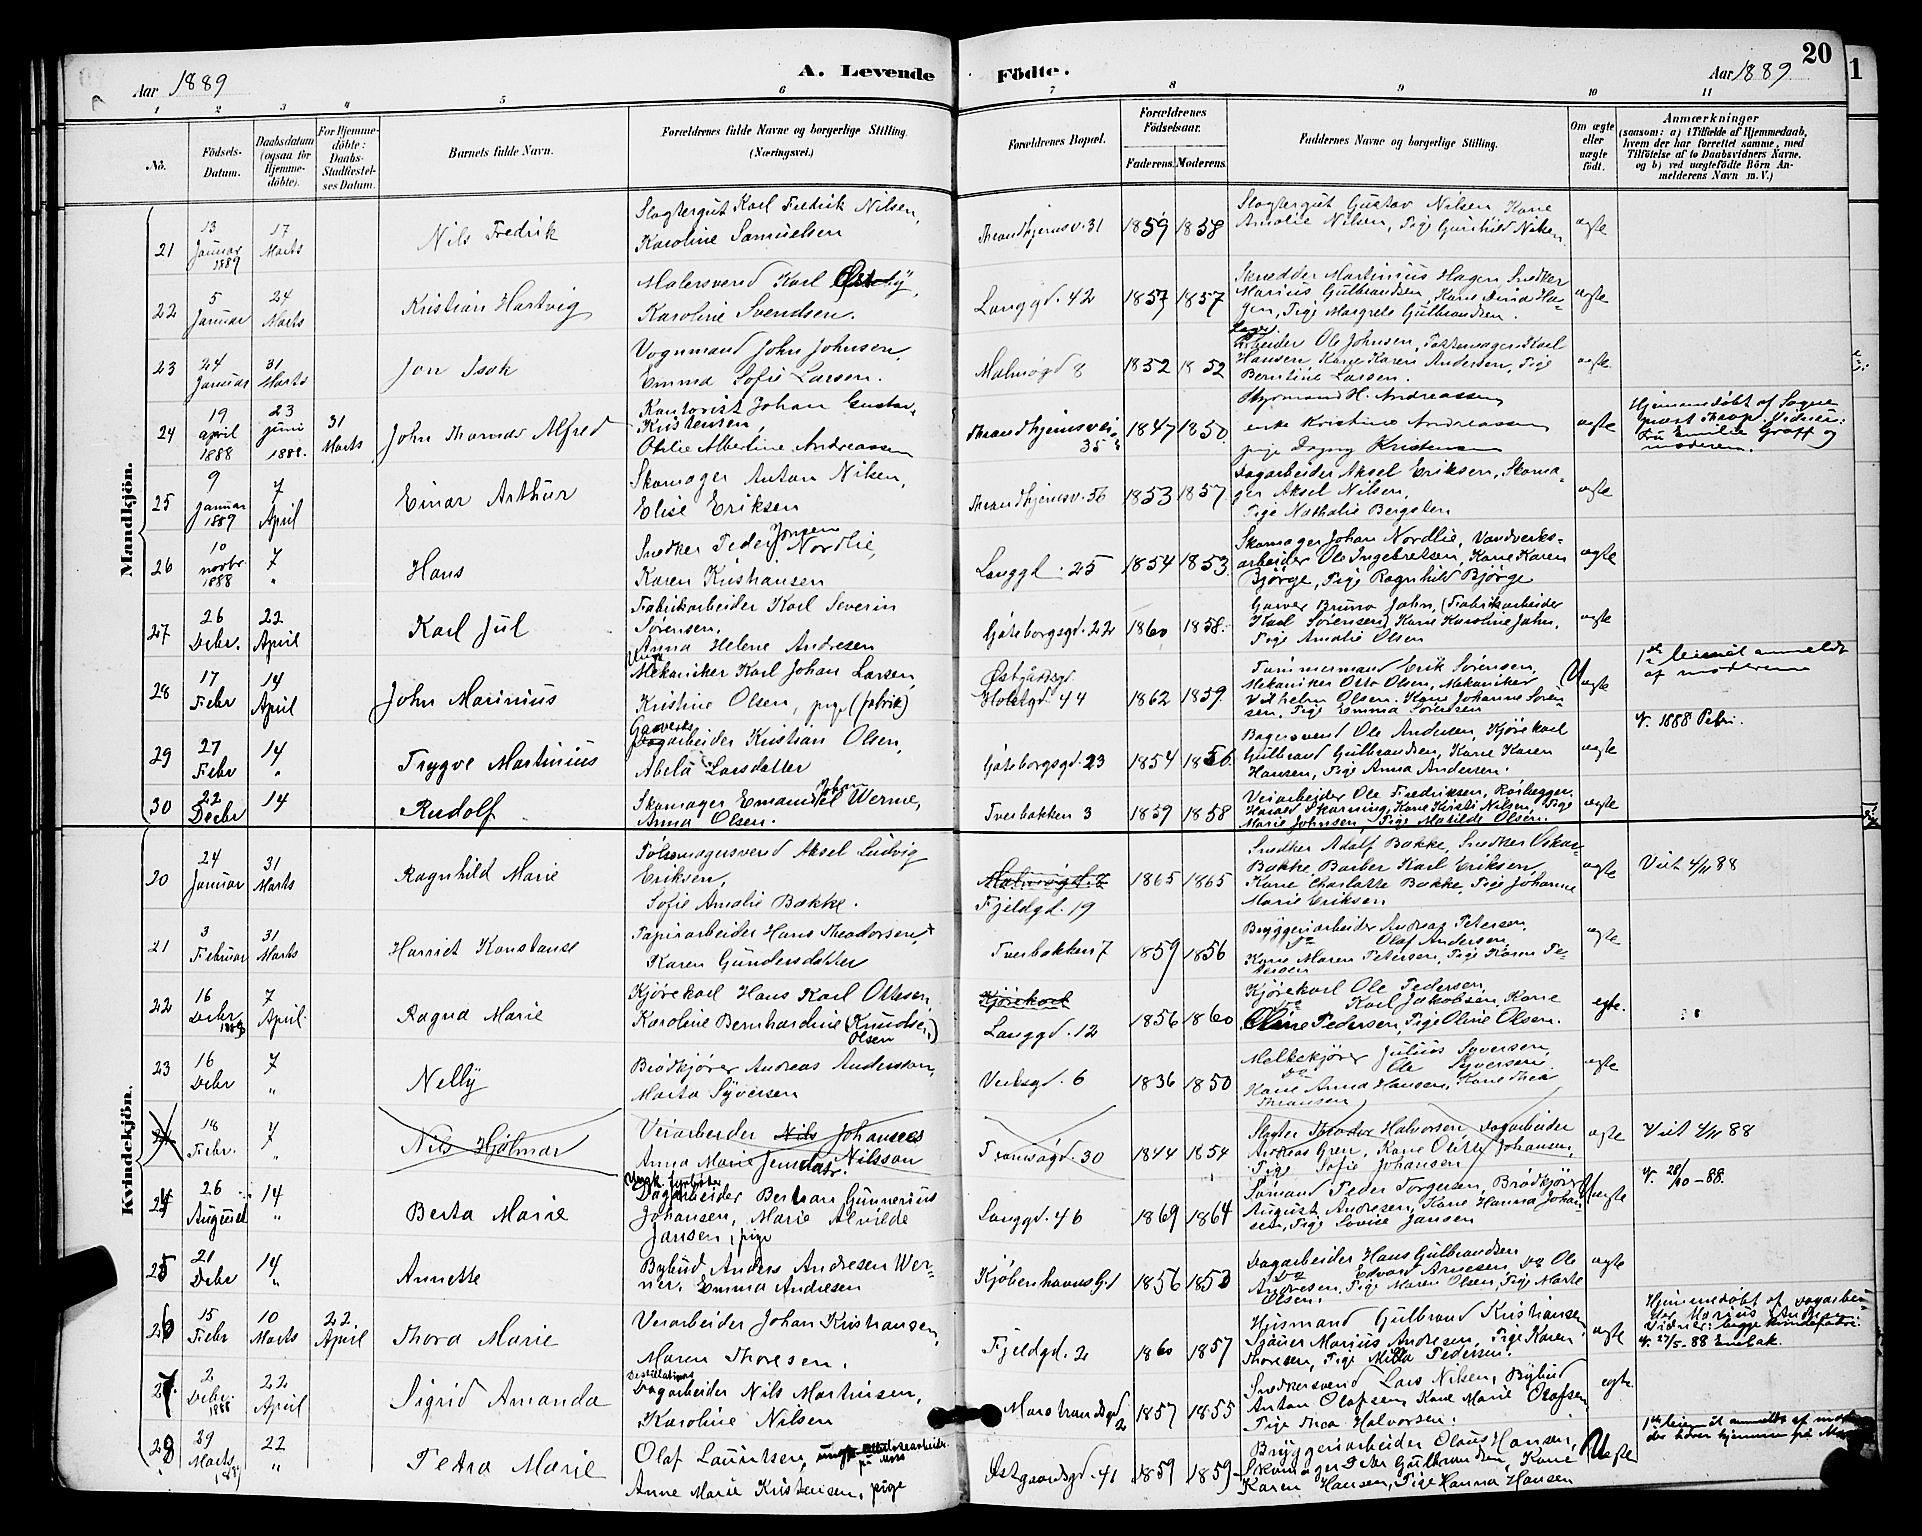 Aar 1889
A. Levende Födte.
Aar 1889
20
1 2 3 4 5 6 7 8 9 10 11
No.
Födsels-Datum.
Daabsdatum (ogsaa for Hjemme-döbte).
For Hjemme-döbte: Daabs-Stadfæstel-ses Datum.
Barnets fulde Navn.
Forældrenes fulde Navne og borgerlige Stilling. (Næringsvei.)
Forældrenes Bopæl.
Forældrenes Födselsaar.
Faderens. Moderens.
Faddernes Navne og borgerlige Stilling.
Om ægte eller uægte födt.
Anmærkninger
(saasom: a) i Tilfælde af Hjemmedaab,
hvem der har forrettet samme, med
Tilföielse af to Daabsvidners Navne,
og b) ved uægtefödte Börn An-
melderens Navn m. V.)
Mandkjön.
21 13 Januar 1889 17 Marts Nils Fredrik
Slagtergut Karl Fredrik Nilsen,
Karoline Samuelsen
Throndhjemsv. 31 1859 1858
Slagtergut Gustav Nilsen Kone
Amalie Nilsen, Pige Gunhild Nilsen
ægte
22 5 Januar 24 Marts Kristian Hartvig
Malersvend Karl Østby,
Karoline Svendsen.
Langgd. 42 1857 1857
Skrædder Martinius Hagen Snedker
Marius Gulbrandsen, Kone Dina Ha-
gen, Pige Margrete Gulbrandsen.
ægte
23 24 Januar 31 Marts Jon Isak
Vognmand John Johnsen,
Emma Sofie Larsen.
Malmögd 8 1852 1852
Arbeider Ole Johnsen, Karl
Hansen, Kone Karen Andersen, Pige
Berntine Larsen.
ægte
24 19 april 1888 23 juni 1888. 31 Marts John Thomas Alfred
Kontorist Johan Gustav
Kristensen,
Otilie Albertine Andreassen
Throndhjemsvei 35 1847 1850
Styrmand H. Andreassen
enke Kristine Andreassen
pige Dagny Kristensen
ægte
Hjemmedöbt af Sogne
præst Vidner:
Fru Emilie Graff og
moderen.
25 9 Januar 1889 7 April Einar Arthur
Skomager Anton Nilsen,
Elise Eriksen
Throndhjemsv. 56 1853 1857
Dagarbeider Aksel Eriksen, Skoma-
ger Aksel Nilsen,
Pige Nathalie Bergsten
ægte
26 10 novbr 1888 7 " Hans
Snedker Peder Jörgen Nordlie,
Karen Kristiansen
Langgd. 25 1854 1853
Skomager Johan Nordlie, Vandverks-
arbeider Ole Ingebretsen, Kone Karen
Bjørge, Pige Ragnhild Bjørge
ægte
27 26 Debr. 22 April Karl Jul
Fabrikarbeider Karl Severin
Sørensen,
Anna Helene Andresen
Göteborgsgd. 22 1860 1858.
Garver Bruno Jahn, Fabrikarbeider
Karl Sørensen, Kone Karoline Jahn,
Pige Amalie Olsen
ægte
28 17 Febr 14 April John Marinius
Ungk. Mekaniker Karl Johan Larsen,
Kristine Olsen, pige (fabrik)
Østgårdsgd.
Holstgd. 44 1862 1859.
Tømmermand Erik Sörensen,
Mekaniker Otto Olsen, Mekaniker
Vilhelm Olsen, Kone Johanne Sören-
sen, Pige Emma Sörensen
Uægte
1ste leiermål anmeldt
af moderen
29 27 Febr 14 " Trygve Martinius
Gasverks
Dagarbeider Kristian Olsen,
Abela Larsdatter
Göteborgsgd. 23 1854 1856.
Bagersvend Ole Andersen, Kjørekarl
Gulbrand Gulbrandsen, Kone Karen
Hansen, Pige Anna Andersen.
ægte
v. 1888 Febr.
30 22 Debr 14 Rudolf
Skomager Emanuel Johan Werme,
Anna Olsen.
Tverbakken 3 1859 1858
Veiarbeider Ole Fredriksen, Rörlægger
Harald Skarning, Kone Kristi Nilsen, Pige
Marie Johnsen, Pige Matilde Olsen.
ægte
Kvindekjön.
20 24 Januar 31 Marts Ragnhild Marie
Pølsemagersvend Aksel Ludvig
Eriksen,
Sofie Amalie Bakke.
Malmögd. 8
Fjeldgd. 19 1865 1865
Snedker Adolf Bakke, Snedker Oskar
Bakke, Barber Karl Eriksen,
Kone Charlotte Bakke, Pige Johanne
Marie Eriksen
ægte
Viet 4/11 88
21 3 Februar 31 Marts Harriet Konstanse
Papirarbeider Hans Theodorsen,
Karen Gundersdatter
Tverbakken 7 1859 1856
Bryggeriarbeider Andreas Petersen,
Do Olaf Andersen,
Kone Maren Petersen, Pige Karen Pe-
tersen
ægte
22 16 Debr 1888 7 April Ragna Marie
Kjørekarl Hans Karl Ottesen,
Karoline Bernhardine (Knudsen)
Olsen
Kjørekarl
Langgd. 12 1856 1860
Kjørekarl Ole Pedersen,
Do Karl Jakobsen, Kone
Oline Pedersen, Pige Oline Olsen.
ægte.
23 16 Debr 7 " Nelly
Brödkjører Andreas Andersson,
Marta Syversen
Verksgd. 6 1836 1850
Melkekjører Julius Syversen,
Do Ole Syversen
Kone Anna Hansen, Kone Thea
Fransen
ægte
24 18 Febr. 7 " Nils Hjalmar
Veiarbeider Nils Johansen
Anna Marie Jensdatr. Nilsson
Tromsøgd. 30 1844 1854
Slagter Theodor Halvorsen Dagarbeider
Andreas Gren, Kone Otitte Johansen,
Pige Sofie Johansen
ægte
Viet 4/11 88
24 26 August 14 " Berta Marie
Ungk. fyrbøder
Dagarbeider Bernhan Gunnerius
Johansen, Marie Alvilde
Jansen, pige
Langgd. 46 1869 1864
Sømand Peder Torgersen, Brødkjører
August Andresen, Kone Hanna Johan-
sen, Pige Lovise Jansen
Uægte
v. 28/10-88.
25 21 Debr 14 " Annette
Bybud Anders Andresen Wer-
ner, Emma Andresen
Kjøbenhavns Gd 1856 1853
Dagarbeider Hans Gulbrandsen
Do Edvard Arnesen, Do Ole
Andresen, Pige Maren Olsen, Pige Marte
Olsen.
ægte
26 15 Febr 10 Marts 22 April Thora Marie
Veiarbeider Johan Kristiansen,
Maren Thoresen,
Fjeldgd. 2 1860 1857
Husmand Gulbrand Kristiansen
Sjauer Marius Andresen, Pige Karen
Thoresen, Pige Milla Pedersen.
ægte
Hjemmedøbt af Dagarbei-
der Marius Andresen
Vidner: begge
v. 27/5-88 Enebak.
27. 2 Debr. 1888 22 April Sigrid Amanda
Destillations
Dagarbeider Nils Martinsen,
Karoline Nilsen
Marstrandsgd 2 1857 1855
Snedkersvend Lars Nilsen, Bybud
Anton Olafsen, Kone Marie Olafsen
Pige Thea Halvorsen.
ægte.
28 29 Marts 1889 22 " Petra Marie
Olaf Lauritsen,
på Moss
Anne Marie Kristensen, pige
Østgaardsgd. 41 1859 1859
Bryggeriarbeider Olaus Hansen,
Skomager Peter Gulbrandsen, Kone
Karen Hansen, Pige Hanna Hansen
Uægte
1ste leiermål anmeldt af mod
der hører hjemme på Moss